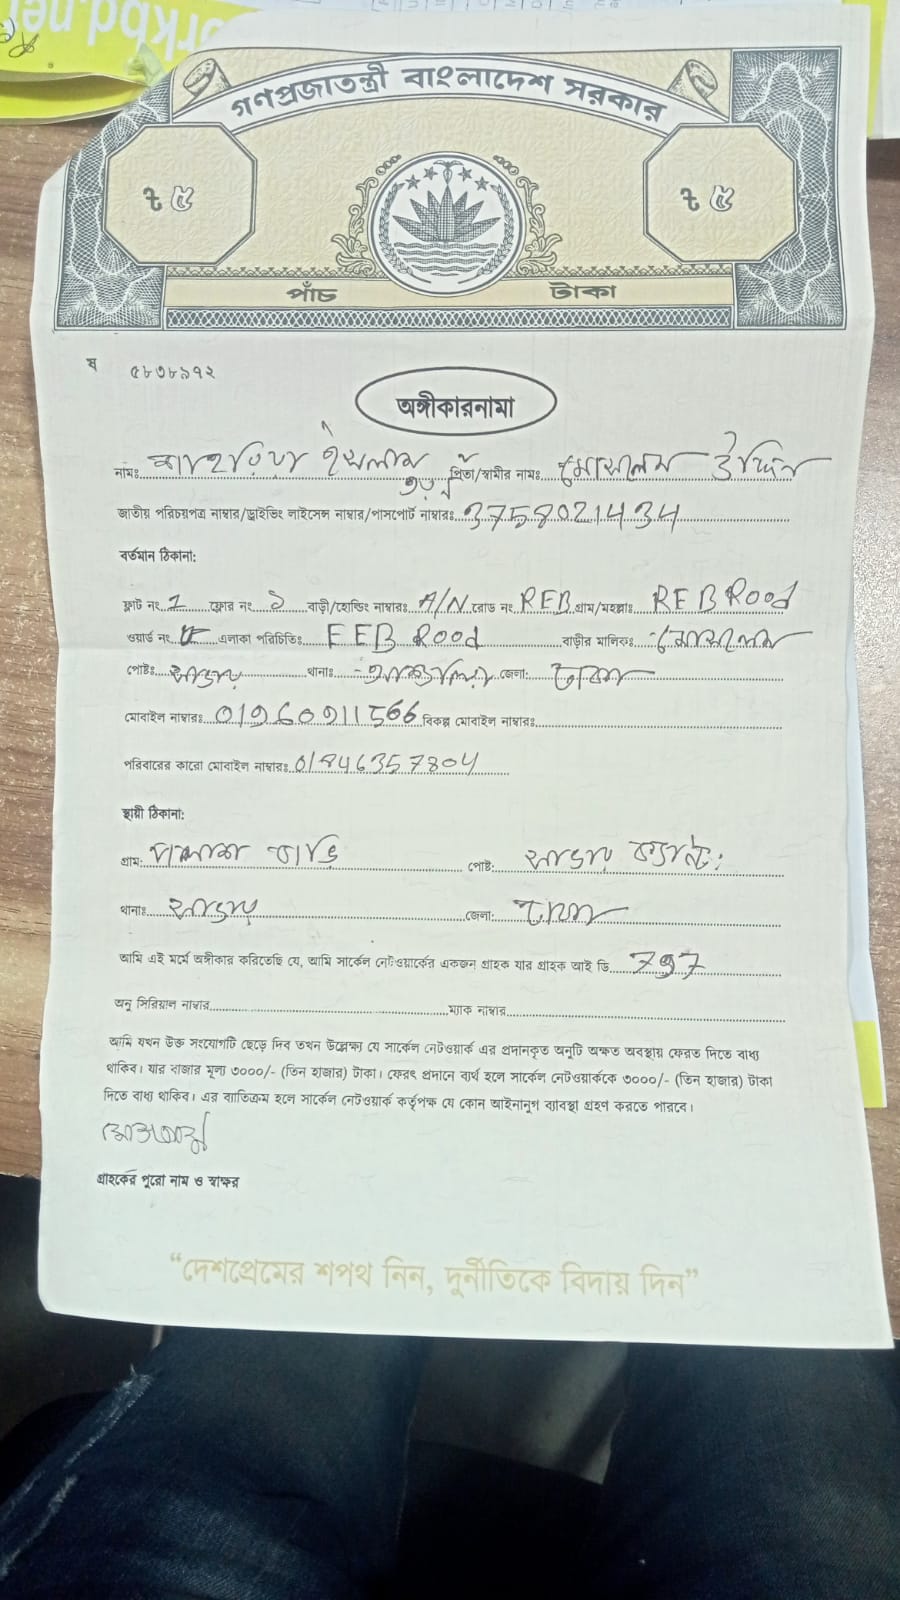 গণপ্রজাতন্ত্রী বাংলাদেশ সরকার
৳ ৫ ৳ ৫
পাঁচ টাকা
ষ ৫৮৩৮৯১২
অঙ্গীকারনামা
নামঃ ইসলাম পিতা/স্বামীর নামঃ মোসলেম উদ্দিন
জাতীয় পরিচয়পত্র নাম্বার/ড্রাইভিং লাইসেন্স নাম্বার/পাসপোর্ট নাম্বারঃ 3758021434
বর্তমান ঠিকানা:
ফ্লাট নং 1 ফ্লোর নং ১ বাড়ী/হোল্ডিং নাম্বারঃ A/N রোড নং REB গ্রাম/মহল্লাঃ REB Rood
ওয়ার্ড নং এলাকা পরিচিতিঃ EEB Rood বাড়ীর মালিকঃ মোসলেম
পোষ্টঃ সাভার থানাঃ আশুলিয়া জেলা: ঢাকা
মোবাইল নাম্বারঃ 01960911566 বিকল্প মোবাইল নাম্বারঃ
পরিবারের কারো মোবাইল নাম্বারঃ 01846357804
স্থায়ী ঠিকানা:
গ্রাম: পলাশ বাড়ি পোষ্ট: সাভার ক্যান্ট:
থানাঃ সাভার জেলা: ঢাকা
আমি এই মর্মে অঙ্গীকার করিতেছি যে, আমি সার্কেল নেটওয়ার্কের একজন গ্রাহক যার গ্রাহক আই ডি 797
অনু সিরিয়াল নাম্বার ম্যাক নাম্বার
আমি যখন উক্ত সংযোগটি ছেড়ে দিব তখন উল্লেক্ষ্য যে সার্কেল নেটওয়ার্ক এর প্রদানকৃত অনুটি অক্ষত অবস্থায় ফেরত দিতে বাধ্য
থাকিব। যার বাজার মূল্য ৩০০০/- (তিন হাজার) টাকা। ফেরৎ প্রদানে ব্যর্থ হলে সার্কেল নেটওয়ার্ককে ৩০০০/- (তিন হাজার) টাকা
দিতে বাধ্য থাকিব। এর ব্যতিক্রম হলে সার্কেল নেটওয়ার্ক কর্তৃপক্ষ যে কোন আইনানুগ ব্যাবস্থা গ্রহণ করতে পারবে।
গ্রাহকের পুরো নাম ও স্বাক্ষর
“দেশপ্রেমের শপথ নিন, দুর্নীতিকে বিদায় দিন”